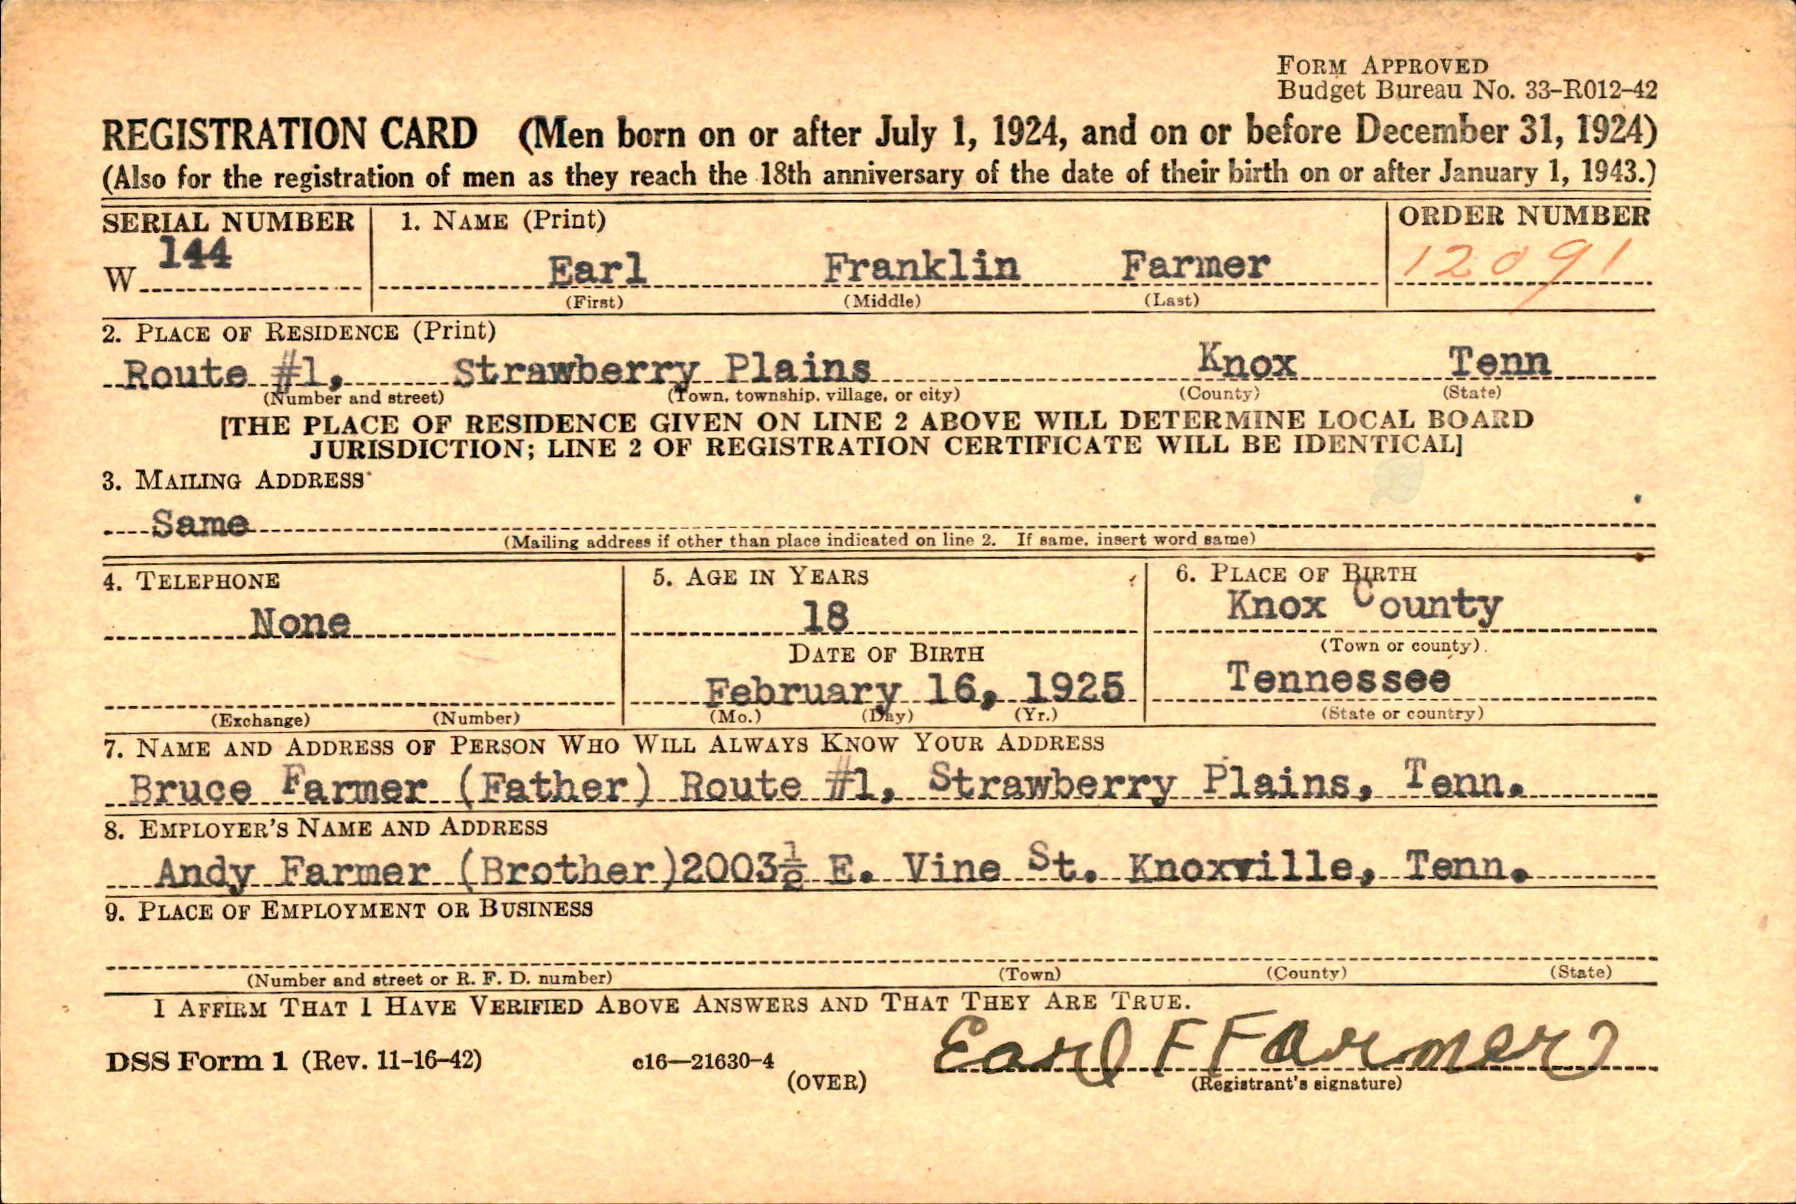 FORM APPROVED
Budget Bureau No. 33-R012-42
REGISTRATION CARD (Men born on or after July 1, 1924, and on or before December 31, 1924)
(Also for the registration of men as they reach the 18th anniversary of the date of their birth on or after January 1, 1943.)
SERIAL NUMBER 1. NAME (Print) ORDER NUMBER
W 144 Earl Franklin Farmer 12091
(First) (Middle) (Last)
2. PLACE OF RESIDENCE (Print)
Route #1, Strawberry Plains Knox Tenn
(Number and street) (Town, township, village, or city) (County) (State)
[THE PLACE OF RESIDENCE GIVEN ON LINE 2 ABOVE WILL DETERMINE LOCAL BOARD
JURISDICTION; LINE 2 OF REGISTRATION CERTIFICATE WILL BE IDENTICAL]
3. MAILING ADDRESS
Same
(Mailing address if other than place indicated on line 2. If same, insert word same)
4. TELEPHONE 5. AGE IN YEARS 6. PLACE OF BIRTH
None 18 Knox County
DATE OF BIRTH (Town or county)
February 16, 1925 Tennessee
(Exchange) (Number) (Mo.) (Day) (Yr.) (State or country)
7. NAME AND ADDRESS OF PERSON WHO WILL ALWAYS KNOW YOUR ADDRESS
Bruce Farmer (Father) Route #1, Strawberry Plains, Tenn.
8. EMPLOYER'S NAME AND ADDRESS
Andy Farmer (Brother)2003½ E. Vine St. Knoxville, Tenn.
9. PLACE OF EMPLOYMENT OR BUSINESS
(Number and street or R. F. D. number) (Town) (County) (State)
I AFFIRM THAT I HAVE VERIFIED ABOVE ANSWERS AND THAT THEY ARE TRUE.
DSS Form 1 (Rev. 11-16-42) c16—21630-4 Earl F Farmer
(OVER) (Registrant's signature)